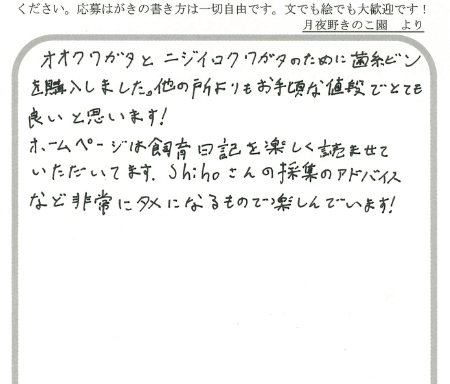 ください。応募はがきの書き方は一切自由です。文でも絵でも大歓迎です！
月夜野きのこ園　より
オオクワガタと ニジイロクワガタのために 菌糸ビン
を購入しました。他の所よりもお手頃な値段でとても
良いと思います！
ホームページは飼育日記を楽しく読ませて
いただいてます。Shihoさんの採集のアドバイス
など非常にタメになるもので楽しんでいます！